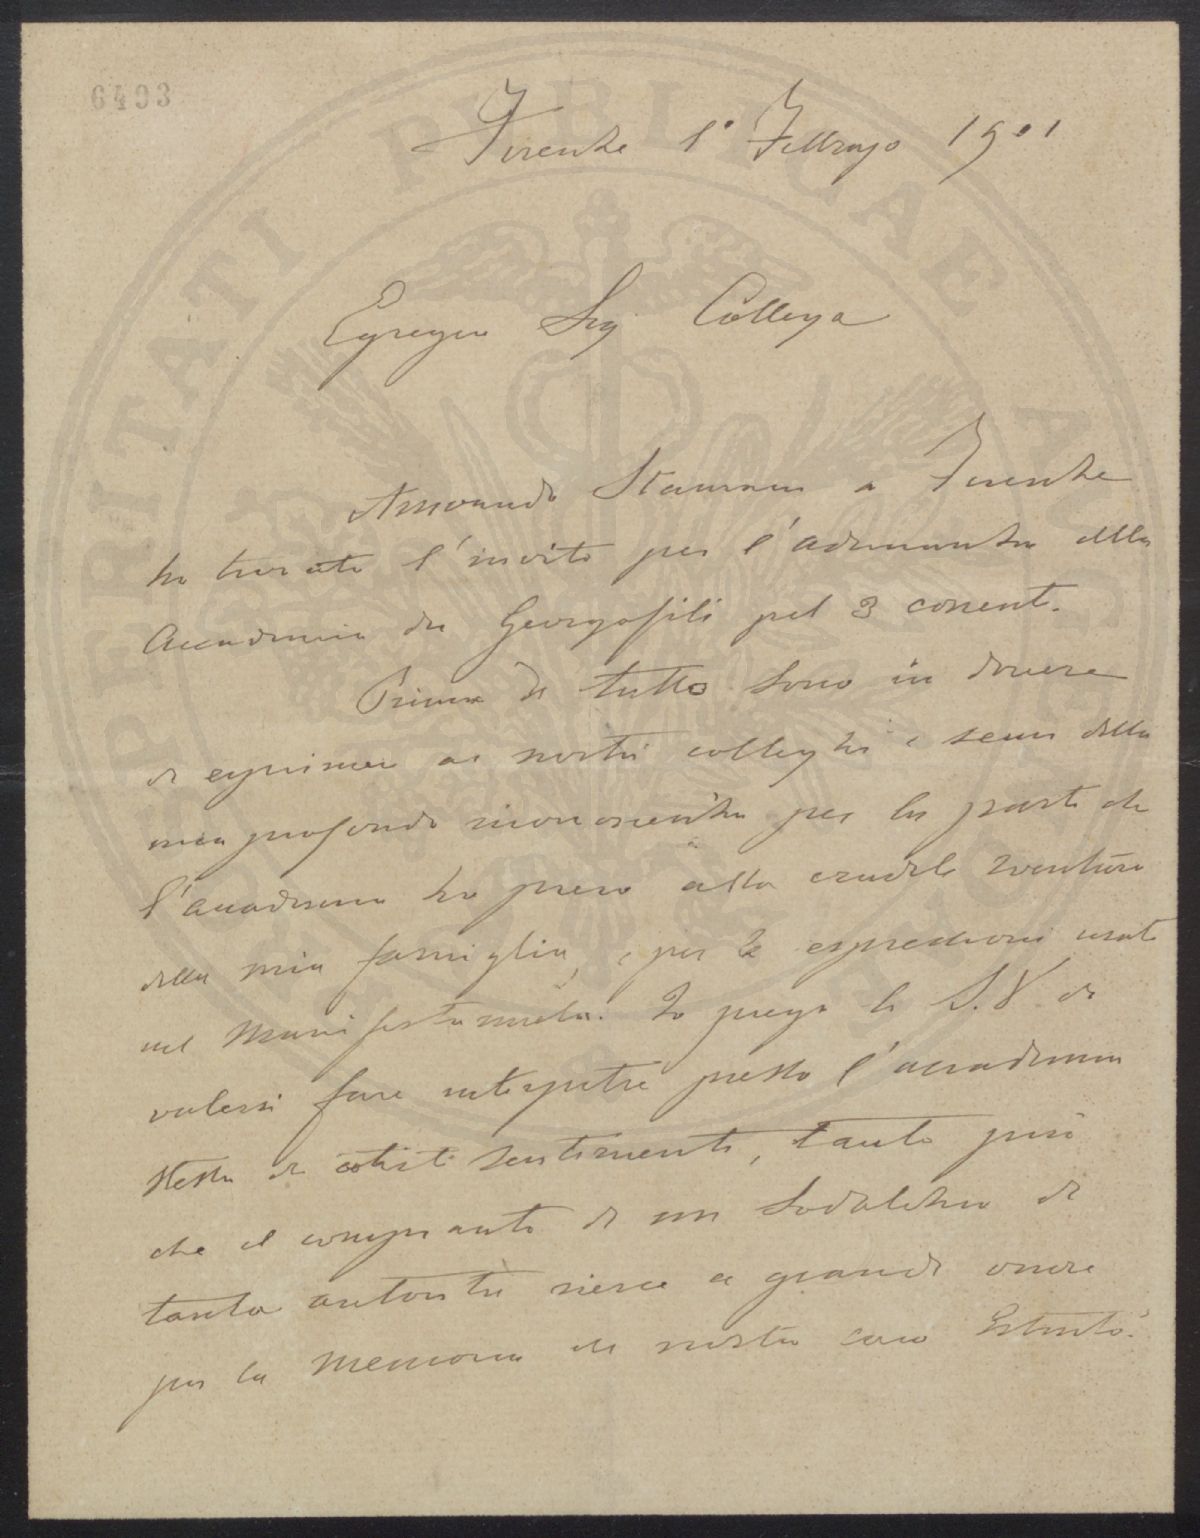 6493
Firenze 1º Febbrajo 1901
Egregio Sig Collega
Arrivando Stamani a Firenze
ho trovato l'invito per l'adunanza della
Accademia dei Georgofili pel 3 corrente.
Prima di tutto sono in dovere
di esprimere ai nostri colleghi i sensi della
mia profonda riconoscenza per la parte che
l'accademia ha preso alla crudele sventura
della mia famiglia, e per le espressioni usate
nel manifestarmela. Io prego la S.V. di
volersi fare interpetre presso l'accademia
stessa di cotesti sentimenti, tanto più
che il compianto di un Sodalizio di
tanta autorità riesce a grande onore
per la memoria del nostro caro Estinto.
PROSPERITATI PUBLICAE